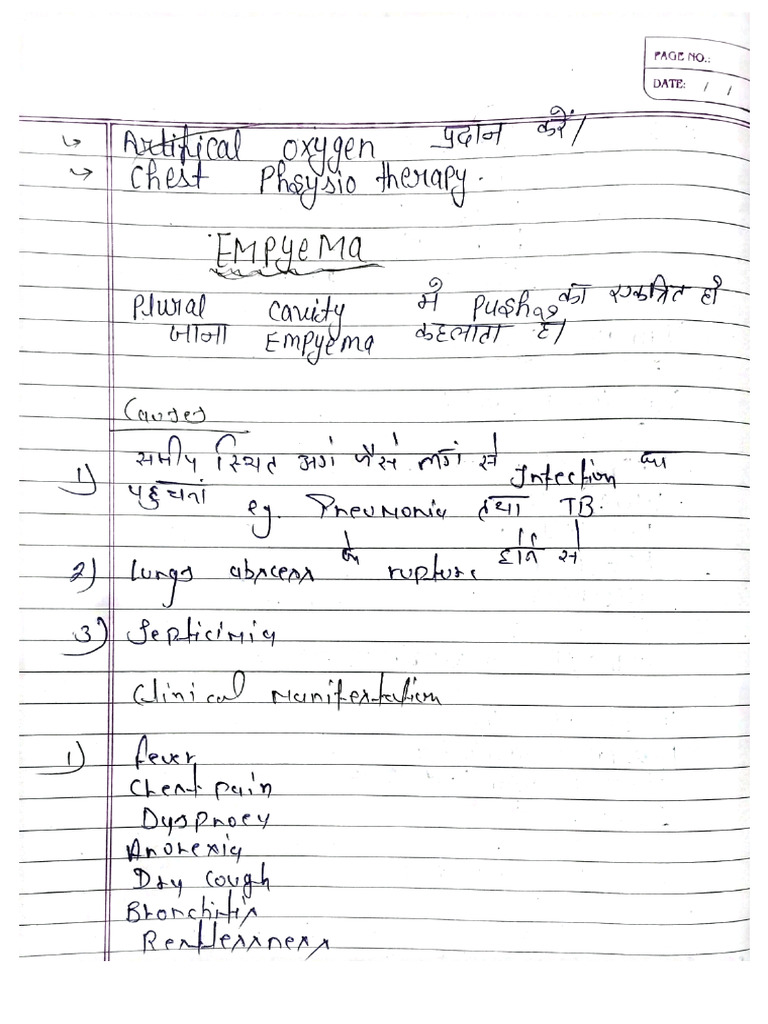 PAGE NO.:
DATE: / /
↳ Artifical oxygen प्रदान करें।
↳ Chest Physio therapy.
EMPyeMa
Plural cavity में push का एकत्रित हो
जाना Empyema कहलाता है।
Causes
1) समीप स्थित अगं जैसे लगं से Infection का
पहुचना eg. Pneumonia तथा TB.
2) Lungs abscess के rupture होने से
3) Septicimia
Clinical Manifestation
1) fever
Chest pain
Dyspnoey
Anorexia
Dry cough
Bronchitis
Restlessness